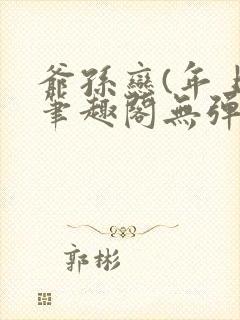 爺孫戀(年上
筆趣閣無彈
郭彬